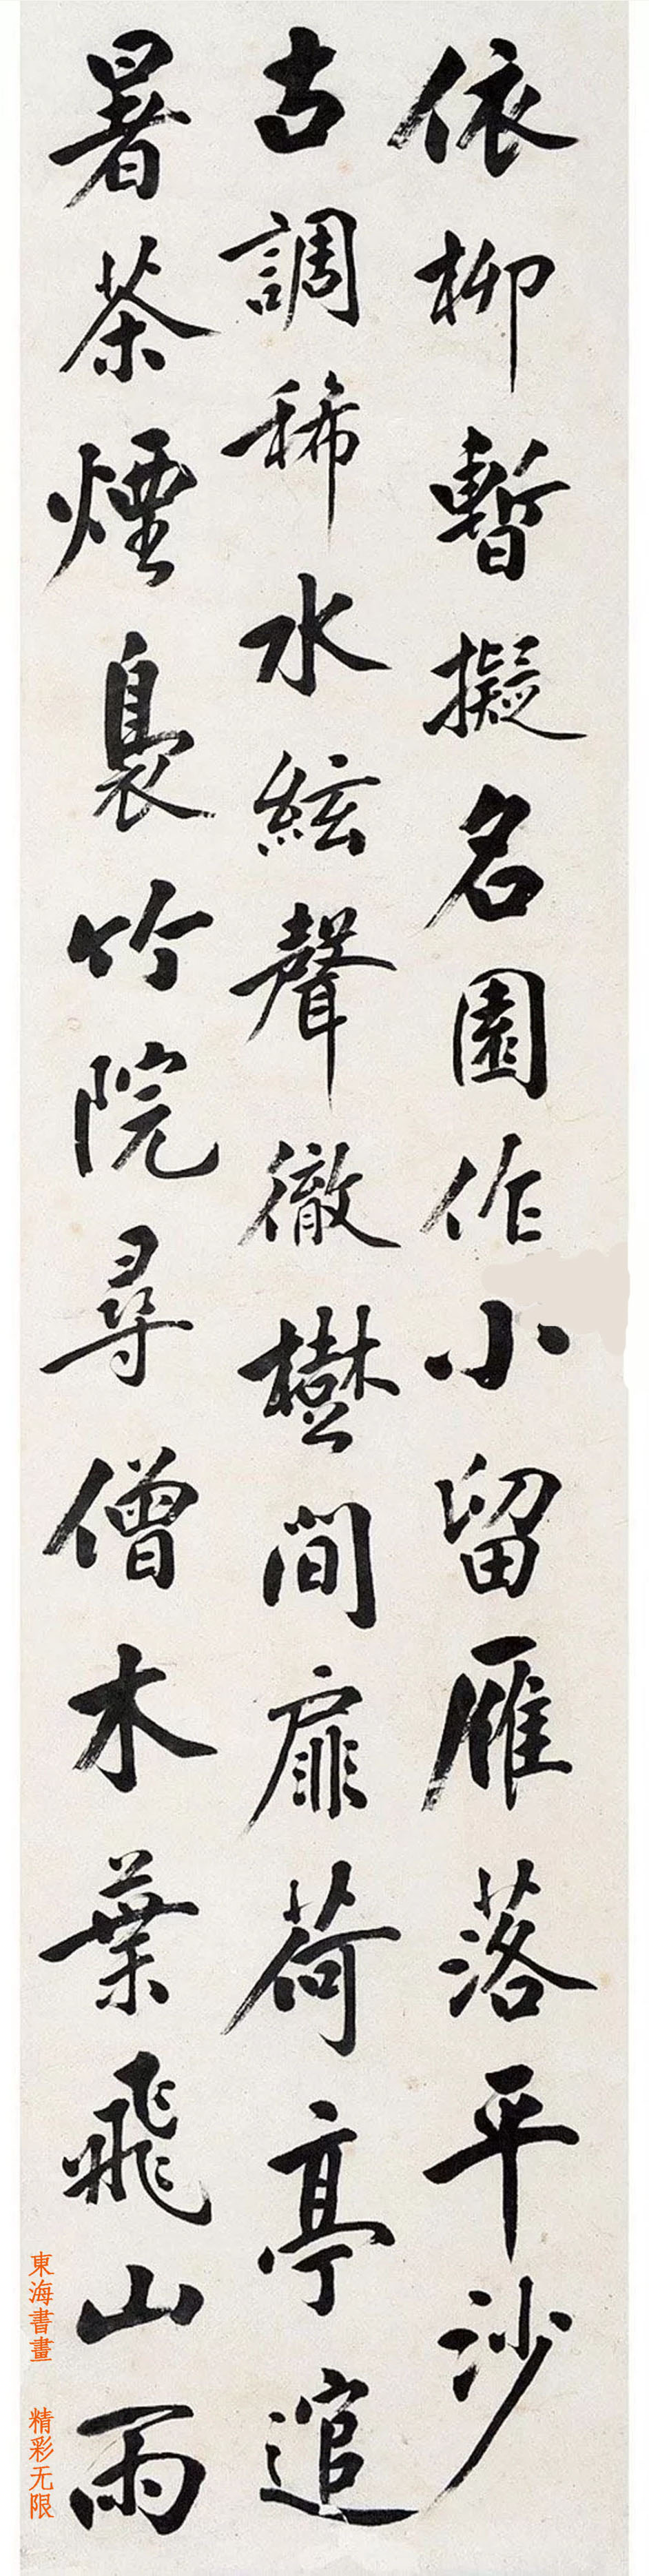 依柳暫擬名園作小留雁落平沙
古調稀水絃聲徹樾間扉荷亭逭
暑茶煙裊竹院尋僧木葉飛山雨
東海書畫 精彩无限